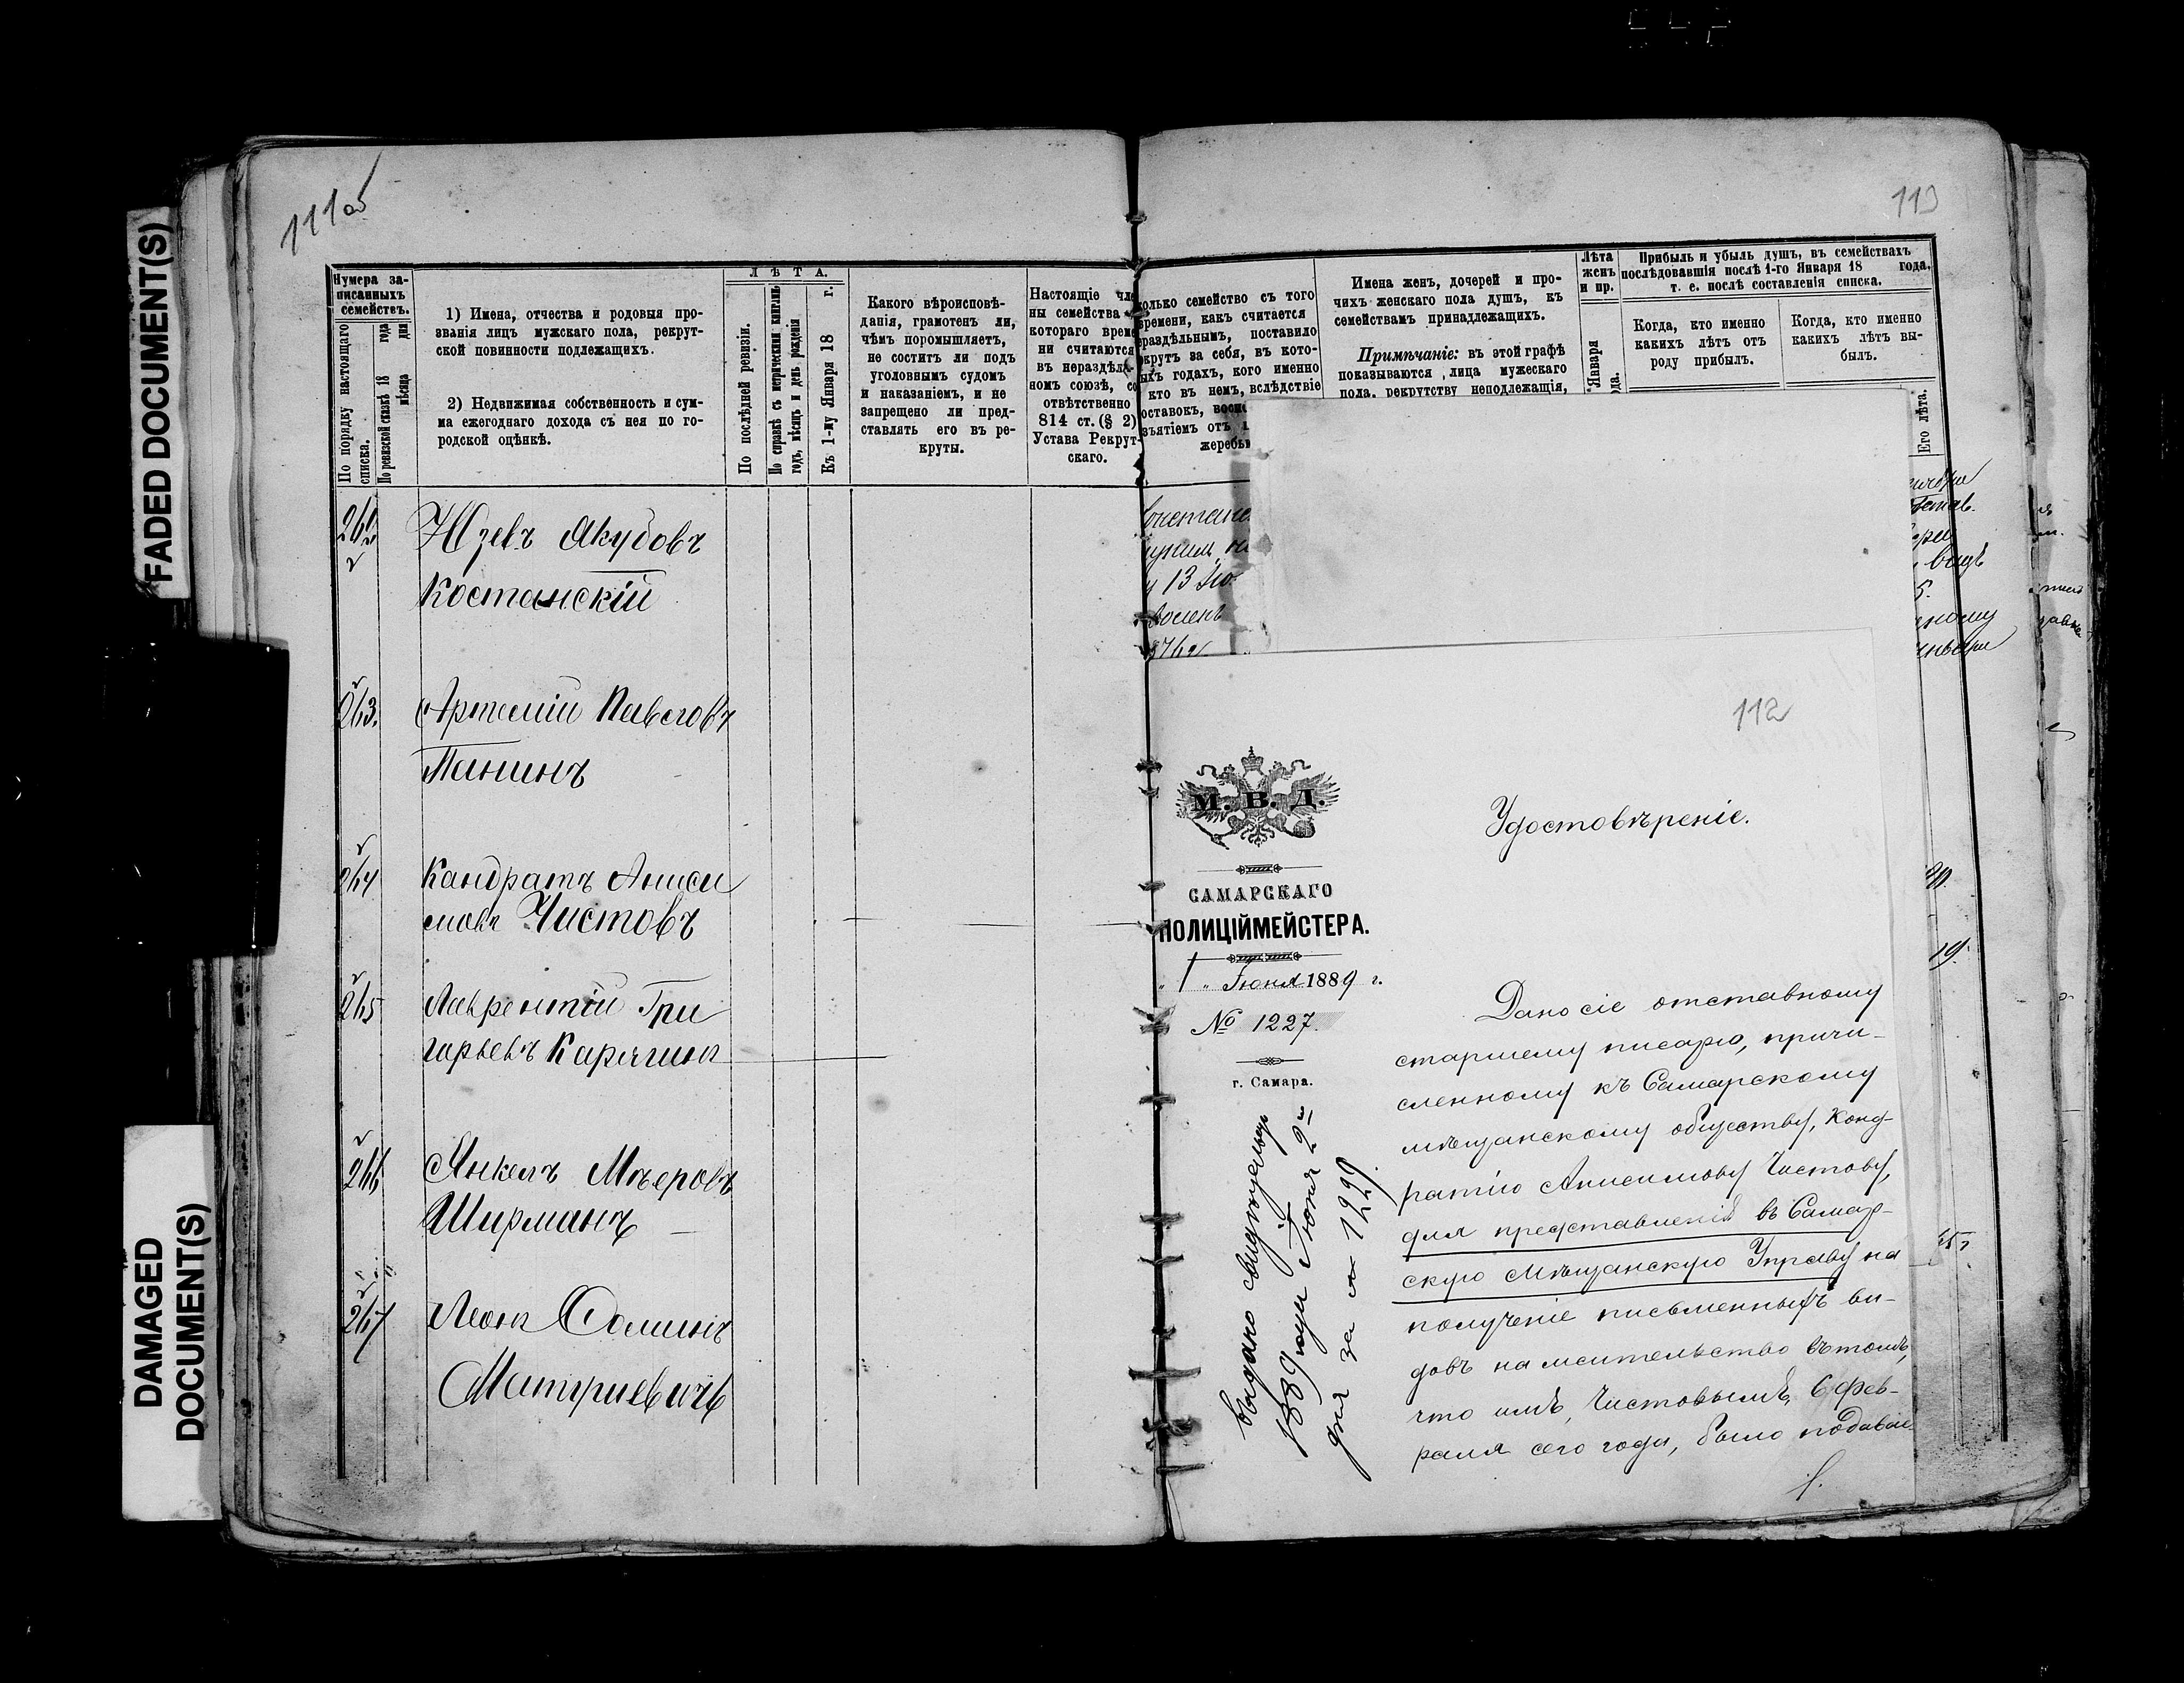 FADED DOCUMENT(S)
DAMAGED
DOCUMENT(S)
111об
Нумера за-
писанныхъ
семействъ.
По порядку настоящаго
списка.
По ревизской сказкѣ 18 года
мѣсяца дня
1) Имена, отчества и родовыя про-
званія лицъ мужскаго пола, рекрут-
ской повинности подлежащихъ.
2) Недвижимая собственность и сум-
ма ежегоднаго дохода съ нея по го-
родской оцѣнкѣ.
ЛѢТА.
По послѣдней ревизіи.
По справкѣ съ метрическими книгами
годъ, мѣсяцъ и день рожденія
Къ 1-му Января 18 г.
Какого вѣроисповѣ-
данія, грамотенъ ли,
чѣмъ поромышляетъ,
не соститъ ли подъ
уголовнымъ судомъ
и наказаніемъ, и не
запрещено ли пред-
ставлять его въ ре-
круты.
Настоящіе чле
ны семейства
котораго време
ни считаются
въ нераздѣль-
номъ союзѣ, со
отвѣтственно
814 ст. (§ 2)
Устава Рекрут-
скаго.
262
Юзевъ Якубовъ
Костанскій
263.
Артемій Павловъ
Панинъ
264
Кандратъ Аниси
мовъ Чистовъ
265
Лаврентій Гри
горьевъ Карягинъ
266
Янкель Мѣеровъ
Ширманъ
267
Леонъ Осминъ
Матушевичъ
113
олько семейство съ того
времени, какъ считается
раздѣльнымъ, поставило
крутъ за себя, въ кото-
ыхъ годахъ, кого именно
кто въ немъ, вслѣдствіе
оставокъ,
зъятіемъ отъ
жеребь
Имена женъ, дочерей и про-
чихъ женскаго пола душъ, къ
семействамъ принадлежащихъ.
Примѣчаніе: въ этой графѣ
показываются лица мужескаго
пола, рекрутству неподлежащія,
Лѣта
женъ
и пр.
Января
Прибыль и убыль душъ, въ семействахъ
послѣдовавшія послѣ 1-го Января 18 года,
т. е. послѣ составленія списка.
Когда, кто именно
какихъ лѣтъ отъ
роду прибылъ.
Когда, кто именно
какихъ лѣтъ вы-
былъ.
Его лѣта.
у 13 Iю
112
М. В. Д.
САМАРСКАГО
ПОЛИЦІЙМЕЙСТЕРА.
„1„ Іюня 1889 г.
№ 1227.
г. Самара.
Выдано свидѣтельство
1889 года Іюня 2го
дня за № 1229.
Удостовѣреніе.
Дано сіе отставному
старшему писарю, причи-
сленному къ Самарскому
мѣщанскому обществу, Конд-
ратію Анисимову Чистову,
для представленія въ Самар-
скую Мѣщанскую Управу на
полученіе письменныхъ ви-
довъ на жительство въ томъ,
что имъ, Чистовымъ, 6 фев-
раля сего года, было подавае-
19.